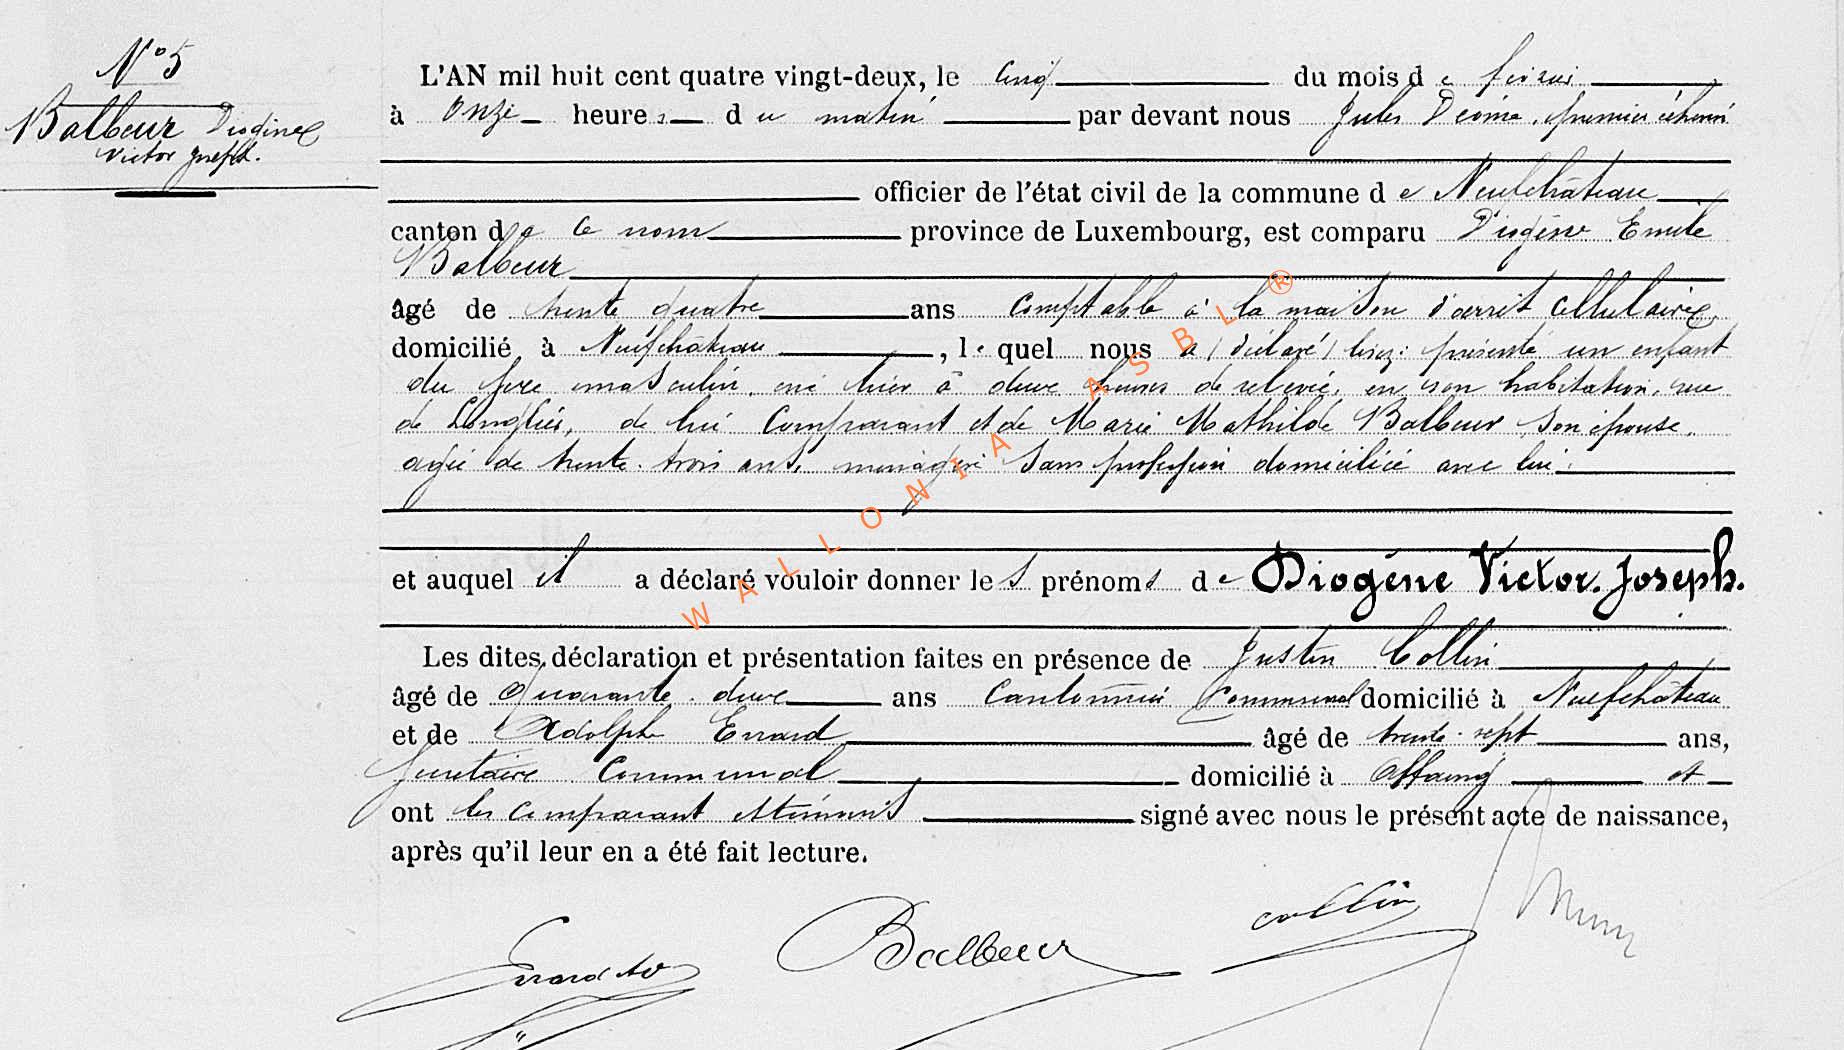 N° 5
Balbeur Diogène
Victor Joseph.
L'AN mil huit cent quatre vingt-deux, le cinq du mois de février
à onze heures du matin par devant nous Jules premier échevin
officier de l'état civil de la commune de Neufchâteau
canton de ce nom province de Luxembourg, est comparu Diogène Emile
Balbeur
âgé de trente quatre ans comptable à la maison d'arrêt cellulaire
domicilié à Neufchâteau, lequel nous a (déclaré) lisez: présenté un enfant
du sexe masculin, né hier à deux heures de relevée, en son habitation, rue
de Longlier, de lui comparant et de Marie Mathilde Balbeur son épouse,
agée de trente-trois ans, ménagère sans profession domiciliée avec lui.
et auquel il a déclaré vouloir donner les prénoms de Diogène Victor. Joseph.
Les dites déclaration et présentation faites en présence de Justin Collin
âgé de Quarante-deux ans Cantonnier Communal domicilié à Neufchâteau
et de Adolphe Errard âgé de trente-sept ans,
Secrétaire Communal domicilié à Assenois et
ont les comparant et témoins signé avec nous le présent acte de naissance,
après qu'il leur en a été fait lecture.
Errard Ad Balbeur Collin
WALLONIA ASBL ®